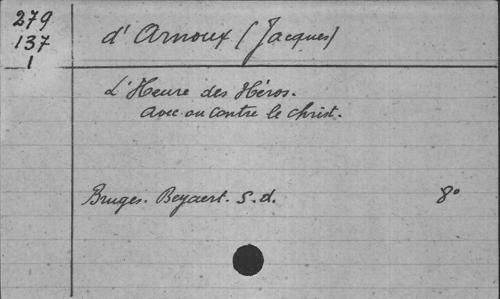 279
137
1
d'Arnoux (Jacques)
L'Heure des Héros.
Avec ou contre le Christ.
Bruges. Beyaert. S.d. 8°